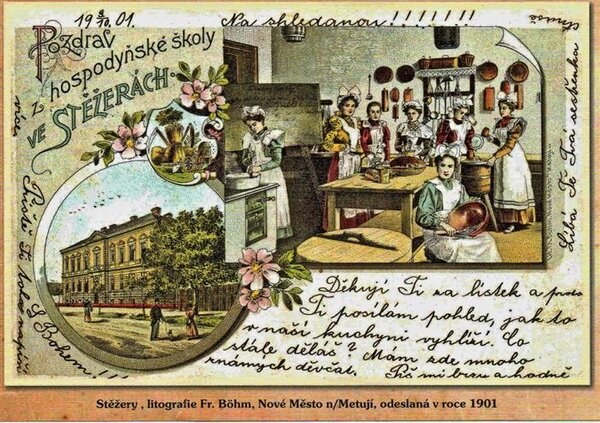 19 9/10 01.
Na shledanou!!!!!!!
Pozdrav
z hospodyňské školy
ve Stěžerách.
Děkuji Ti za lístek a proto
Ti posílám pohled, jak to
v naší kuchyni vyhlíží. Co
stále děláš? Mám zde mnoho
známých děvčat. Piš mi brzo a hodně
více.
S Bohem!!
Líbá Tě Tvá sestřenka
Stěžery , litografie Fr. Böhm, Nové Město n/Metují, odeslaná v roce 1901